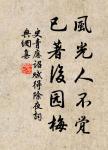 風光人不覺
已著後园梅
史青應詔賦得除夜詞
與網集